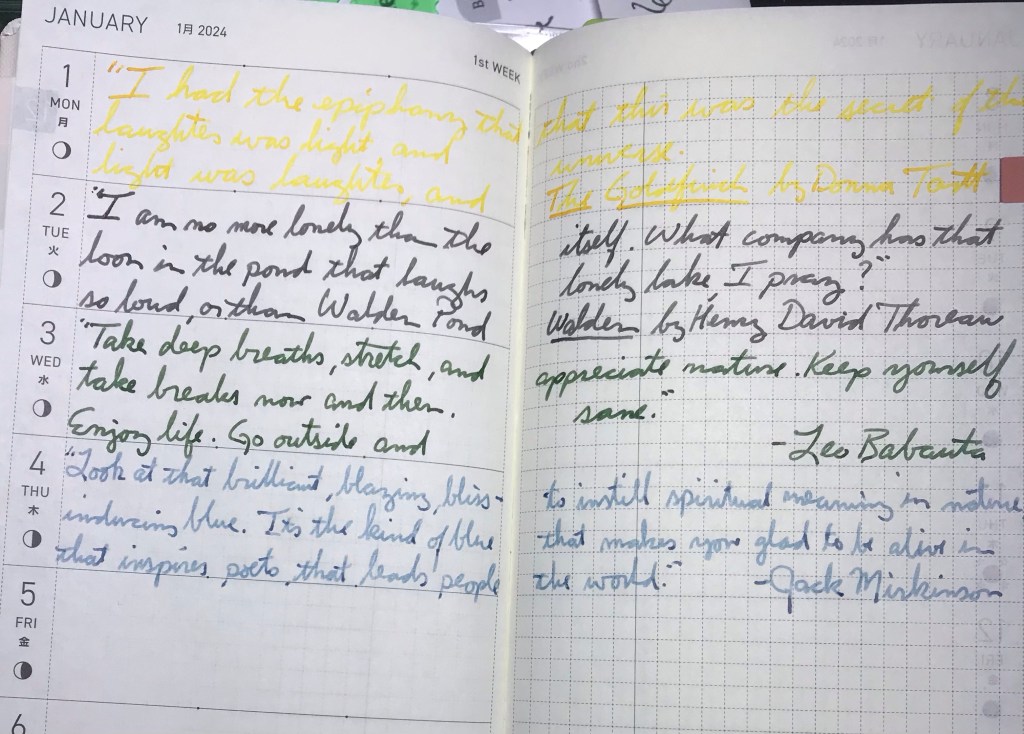 JANUARY 1月 2024
1st WEEK
1
MON
月
"I had the epiphany that
laughter was light, and
light was laughter, and
that this was the secret of the
universe.
The Goldfinch by Donna Tartt
2
TUE
火
"I am no more lonely than the
loon in the pond that laughs
so loud, or than Walden Pond
itself. What company has that
lonely lake, I pray?"
Walden by Henry David Thoreau
3
WED
水
"Take deep breaths, stretch, and
take breaks now and then.
Enjoy life. Go outside and
appreciate nature. Keep yourself
sane."
-Leo Babauta
4
THU
木
"Look at that brilliant, blazing, bliss-
inducing blue. It's the kind of blue
that inspires poets, that leads people
to instill spiritual meaning in nature,
that makes you glad to be alive in
the world." -Jack Mirkinson
5
FRI
金
6